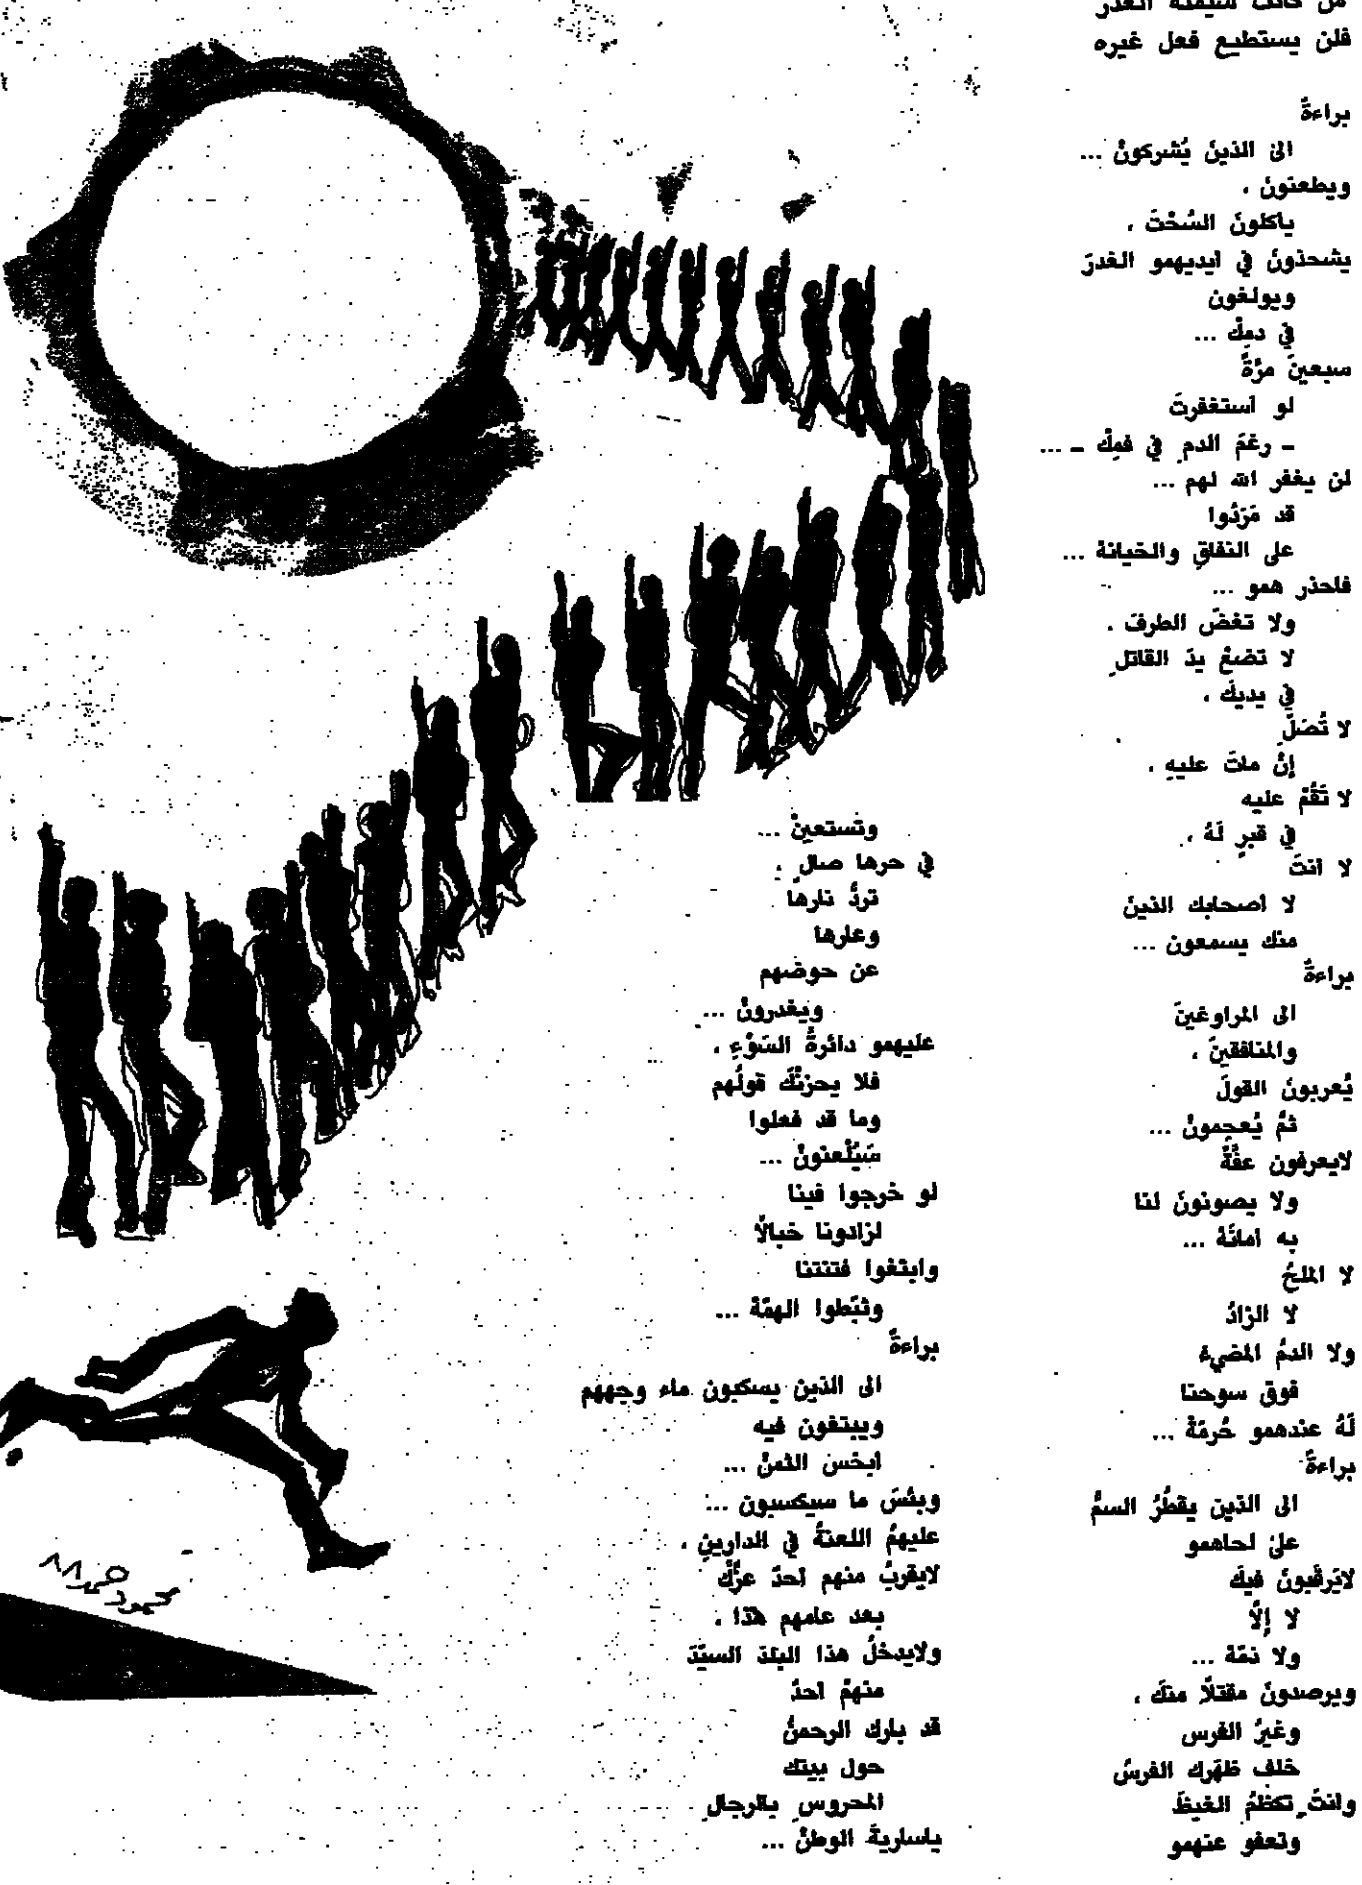 من كانت شيمته الغدر
فلن يستطيع فعل غيره
براءةٌ
الىٰ الذينَ يُشركونْ ...
ويطعنونَ ،
يأكلونَ السُحْتَ ،
يشحذونَ في ايديهمو الغدرَ
ويولغون
في دمِكْ ...
سبعينَ مرَّةً
لو أستغفرتَ
ـ رغمَ الدمِ في فمِكْ ـ ...
لن يغفر الله لهم ...
قد مَرَدُوا
على النفاقِ والخيانة ...
فاحذر همو ...
ولا تغضّ الطرفَ .
لا تضعْ يدَ القاتلِ
في يديكَ ،
لا تُصَلِّ
إنْ ماتَ عليهِ ،
لا تَقُمْ عليه
في قبرٍ لَهُ ،
لا أنتَ
لا أصحابك الذينَ
منك يسمعون ...
براءةٌ
الى المراوغينَ
والمنافقينَ ،
يُعربونَ القولَ
ثمَّ يُعجمونْ ...
لايعرفون عفَّةً
ولا يصونونَ لنا
به أمانَةْ ...
لا الملحُ
لا الزادُ
ولا الدمُ المضيءُ
فوق سوحنا
لَهُ عندهمو حُرمَةْ ...
براءةٌ
الى الذين يقطُرُ السمُّ
علىٰ لحاهمو
لايَرقَبونَ فيكَ
لا إلّاً
ولا ذمّة ...
ويرصدونَ مقتلًا منكَ ،
وغيرُ الفرس
خلف ظهَرك الفرسُ
وانتَ تكظمُ الغيظَ
وتعفو عنهمو
وتستعينْ ...
في حرها صالٍ ،
تردُّ نارها
وعارها
عن حوضهم
ويغدرونْ ...
عليهمو دائرةُ السَوْءِ ،
فلا يحزنْكَ قولُهم
وما قد فعلوا
سَيُلْعنونْ ...
لو خرجوا فينا
لزادونا خبالًا
وابتغوا فتنتنا
وثبّطوا الهمّةْ ...
براءةٌ
الى الذين يسكبون ماء وجههم
ويبتغون فيه
أبخس الثمنْ ...
وبئسَ ما سيكسبون ...
عليهمُ اللعنةُ في الدارينِ ،
لايقربُ منهم أحدٌ عزَّكْ
بعد عامهم هٰذا ،
ولايدخلُ هذا البلدَ السيّدَ
منهمْ أحدٌ
قد بارك الرحمنُ
حول بيتك
المحروسِ بالرجالِ
ياساريةَ الوطنْ ...
محمود حمد ٨٨